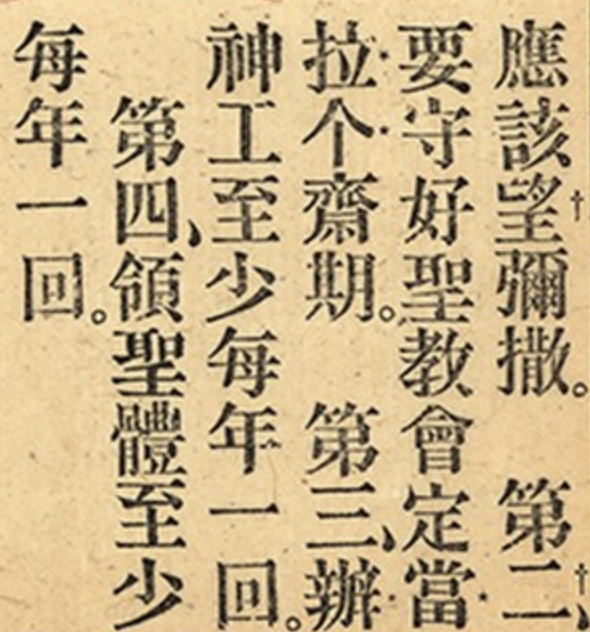 應該望彌撒。　第二、
要守好聖教會定當
拉个齋期。　第三、辦
神工至少每年一回。
第四、領聖體至少
每年一回。